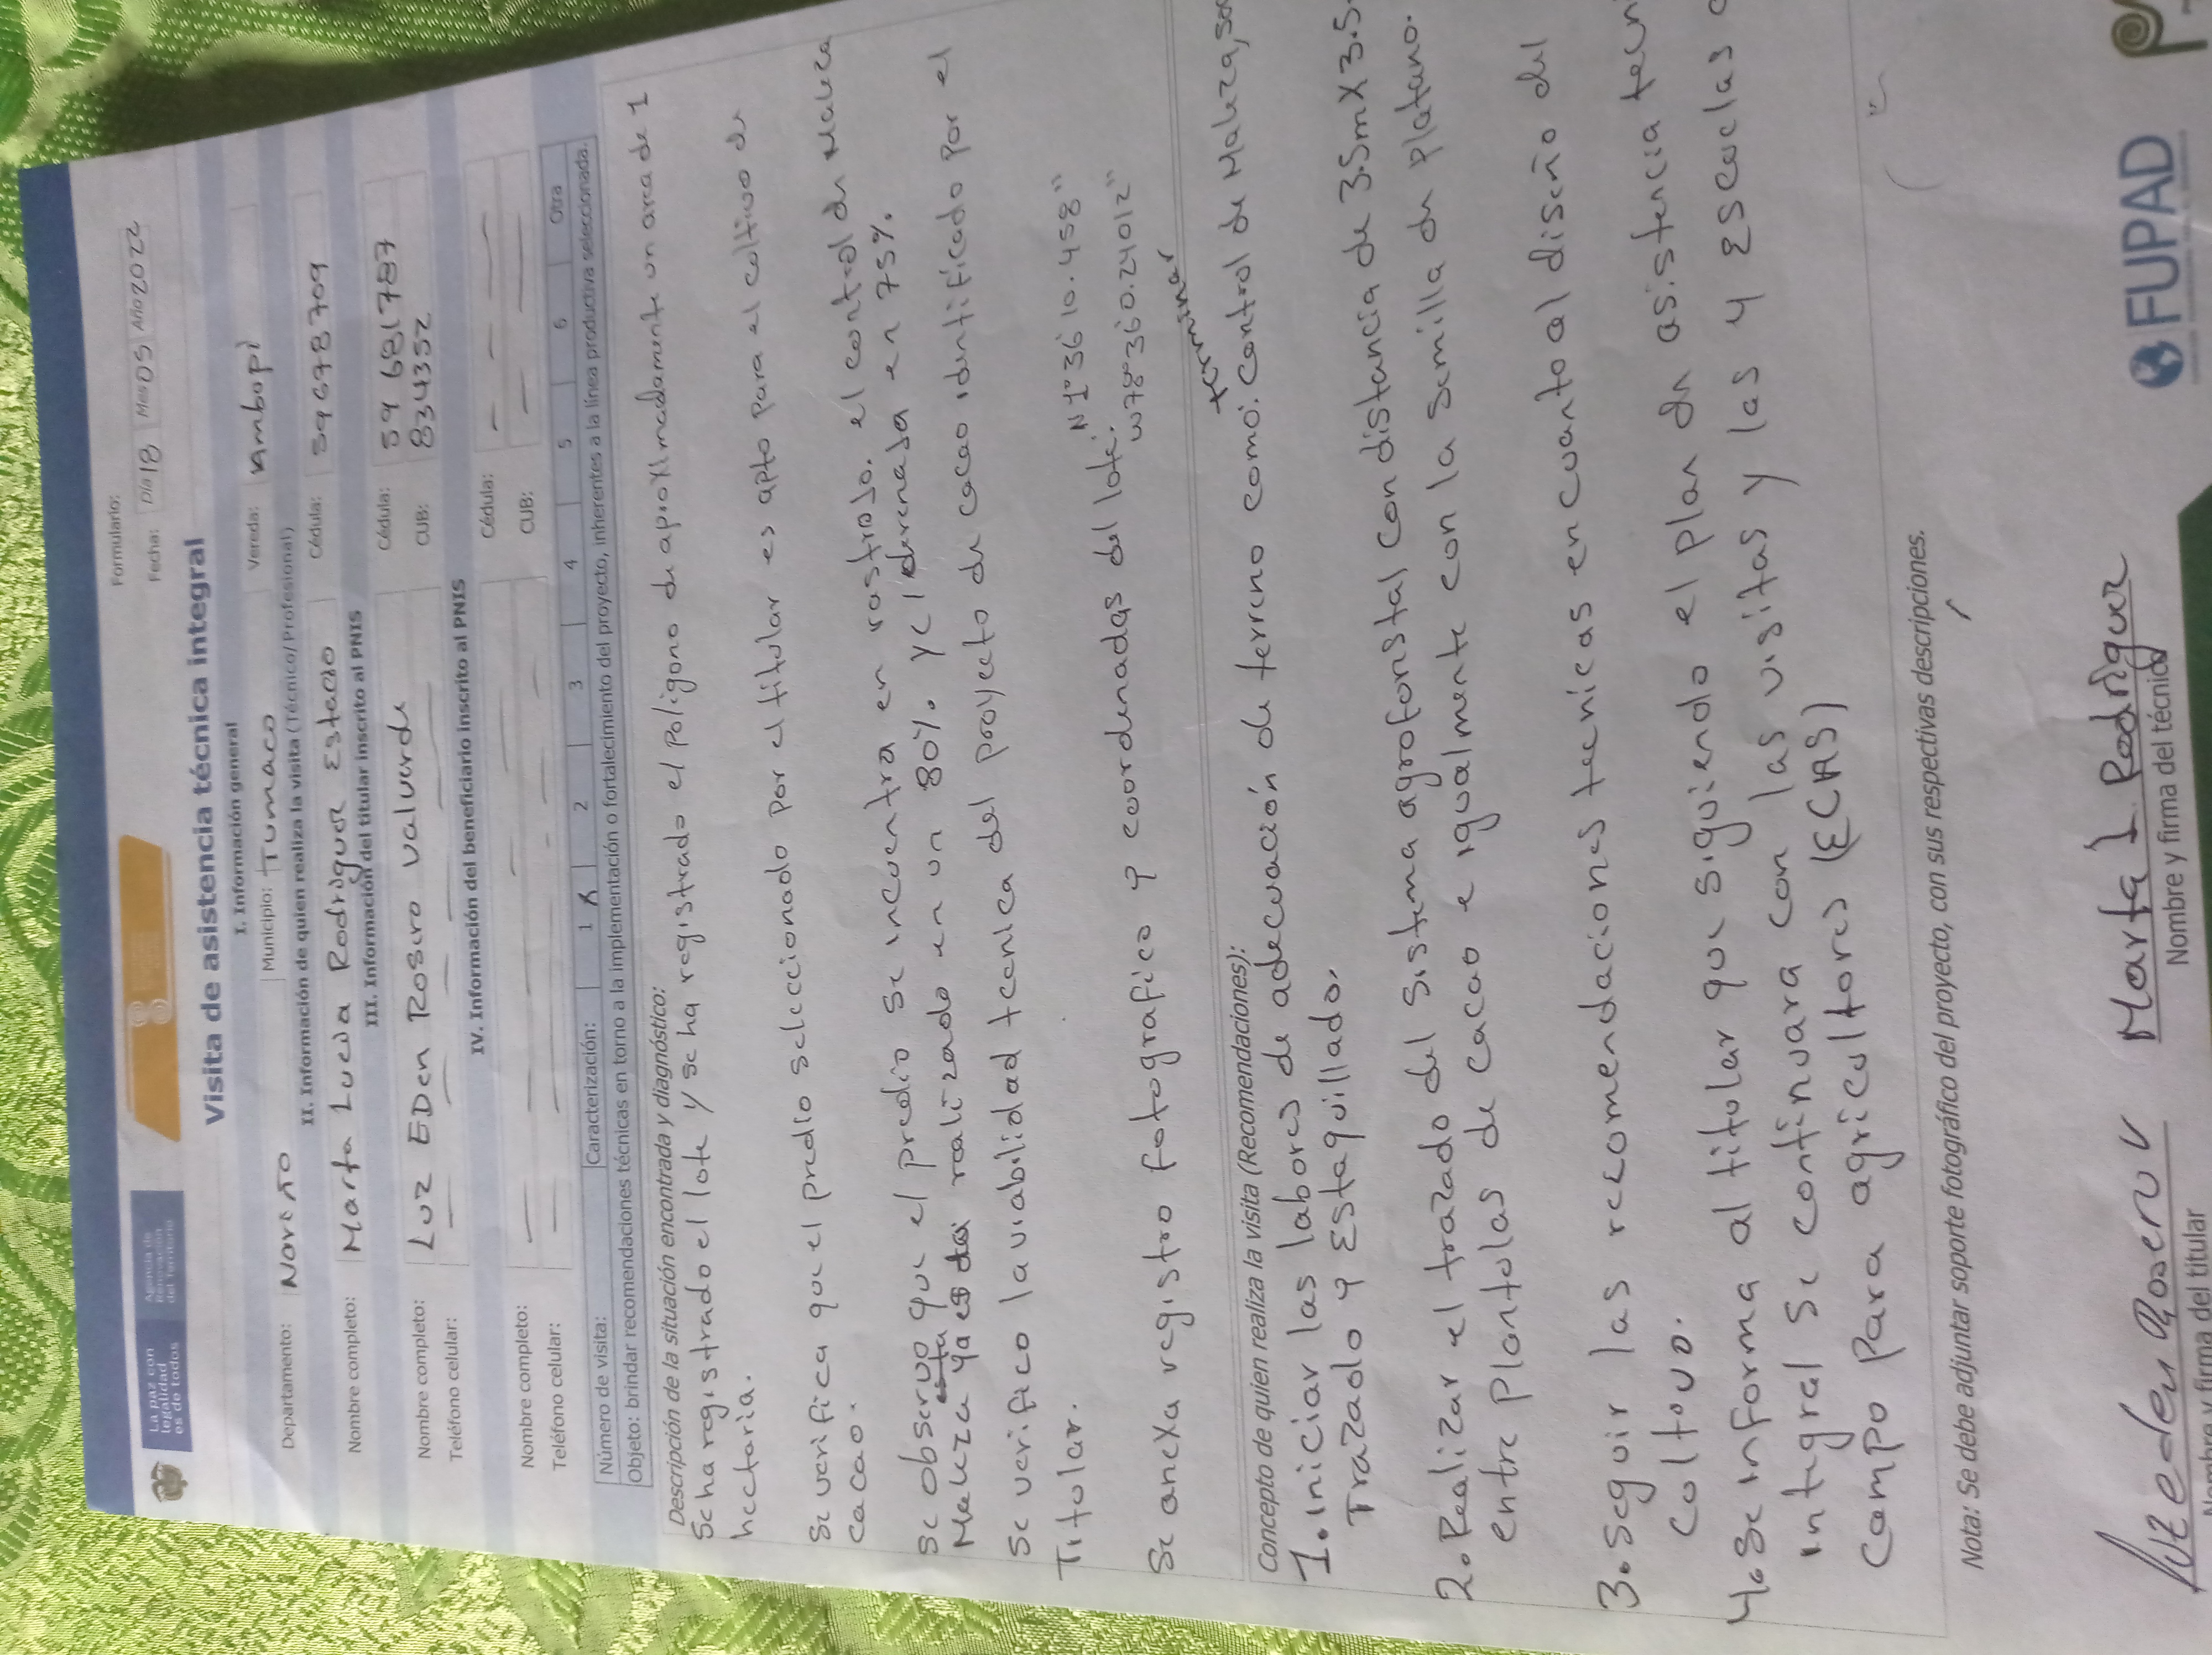 Formulario:
Fecha: Día 18 Mes 05 Año 2022
La paz con legalidad es de todos
Agencia de Renovación del Territorio
Visita de asistencia técnica integral
I. Información general
Departamento: Nariño Municipio: Tumaco Vereda: Ambupi
II. Información de quien realiza la visita (Técnico/Profesional)
Nombre completo: Marta Lucia Rodriguez Estacio Cédula: 59678709
III. Información del titular inscrito al PNIS
Nombre completo: Luz EDen Rosero Valverde Cédula: 59 681787
Teléfono celular: CUB: 834352
IV. Información del beneficiario inscrito al PNIS
Nombre completo: Cédula:
Teléfono celular: CUB:
Número de visita: Caracterización: 1 X 2 3 4 5 6 Otra
Objeto: brindar recomendaciones técnicas en torno a la implementación o fortalecimiento del proyecto, inherentes a la línea productiva seleccionada.
Descripción de la situación encontrada y diagnóstico:
Se ha registrado el lote y se ha registrado el Poligono de aproximadamente un area de 1
hectaria.
se verifica que el predio seleccionado por el titular es apto para el cultivo de
cacao.
se observo que el predio se incuentra en rastrojo. el control de Maleza
Maleza ya esta realizado en un 80%. y el drenaja en 75%.
Se verifico la viabilidad tecnica del proyecto de cacao identificado por el
Titular.
Se anexa registro fotografico y coordenadas del lote: N 1°36'10.458"
W78°36'0.24012"
terminar
Concepto de quien realiza la visita (Recomendaciones):
1. iniciar las labores de adecuación de terreno como: Control de Maleza,
Trazado y Estaquillado.
2. Realizar el trazado del sistema agroforestal con distancia de 3.5m X 3.5
entre Plantulas de cacao e igualmente con la semilla de platano.
3. Seguir las recomendaciones tecnicas en cuanto al diseño del
Cultivo.
4. Se informa al titular que siguiendo el plan de asistencia
integral se continuara con las visitas y las y Escuelas
Campo Para agricultores (ECAS)
Nota: Se debe adjuntar soporte fotográfico del proyecto, con sus respectivas descripciones.
Luz eden Rosero V Marta L Rodriguez
Nombre y firma del titular Nombre y firma del técnico
FUPAD